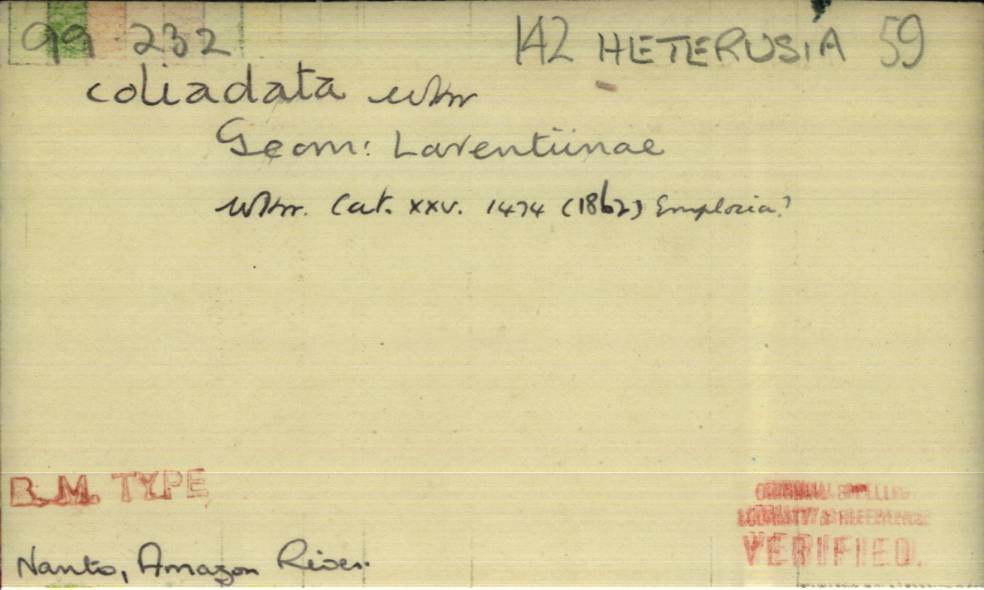 99.232 142 HETERUSIA 59
coliadata wkr
Geom: Larentiinae
wkr. Cat. xxv. 1474 (1862) Emplocia?
B.M. TYPE
ORIGINAL SPELLING
LOCALITY & REFERENCE
VERIFIED.
Nauto, Amazon River.